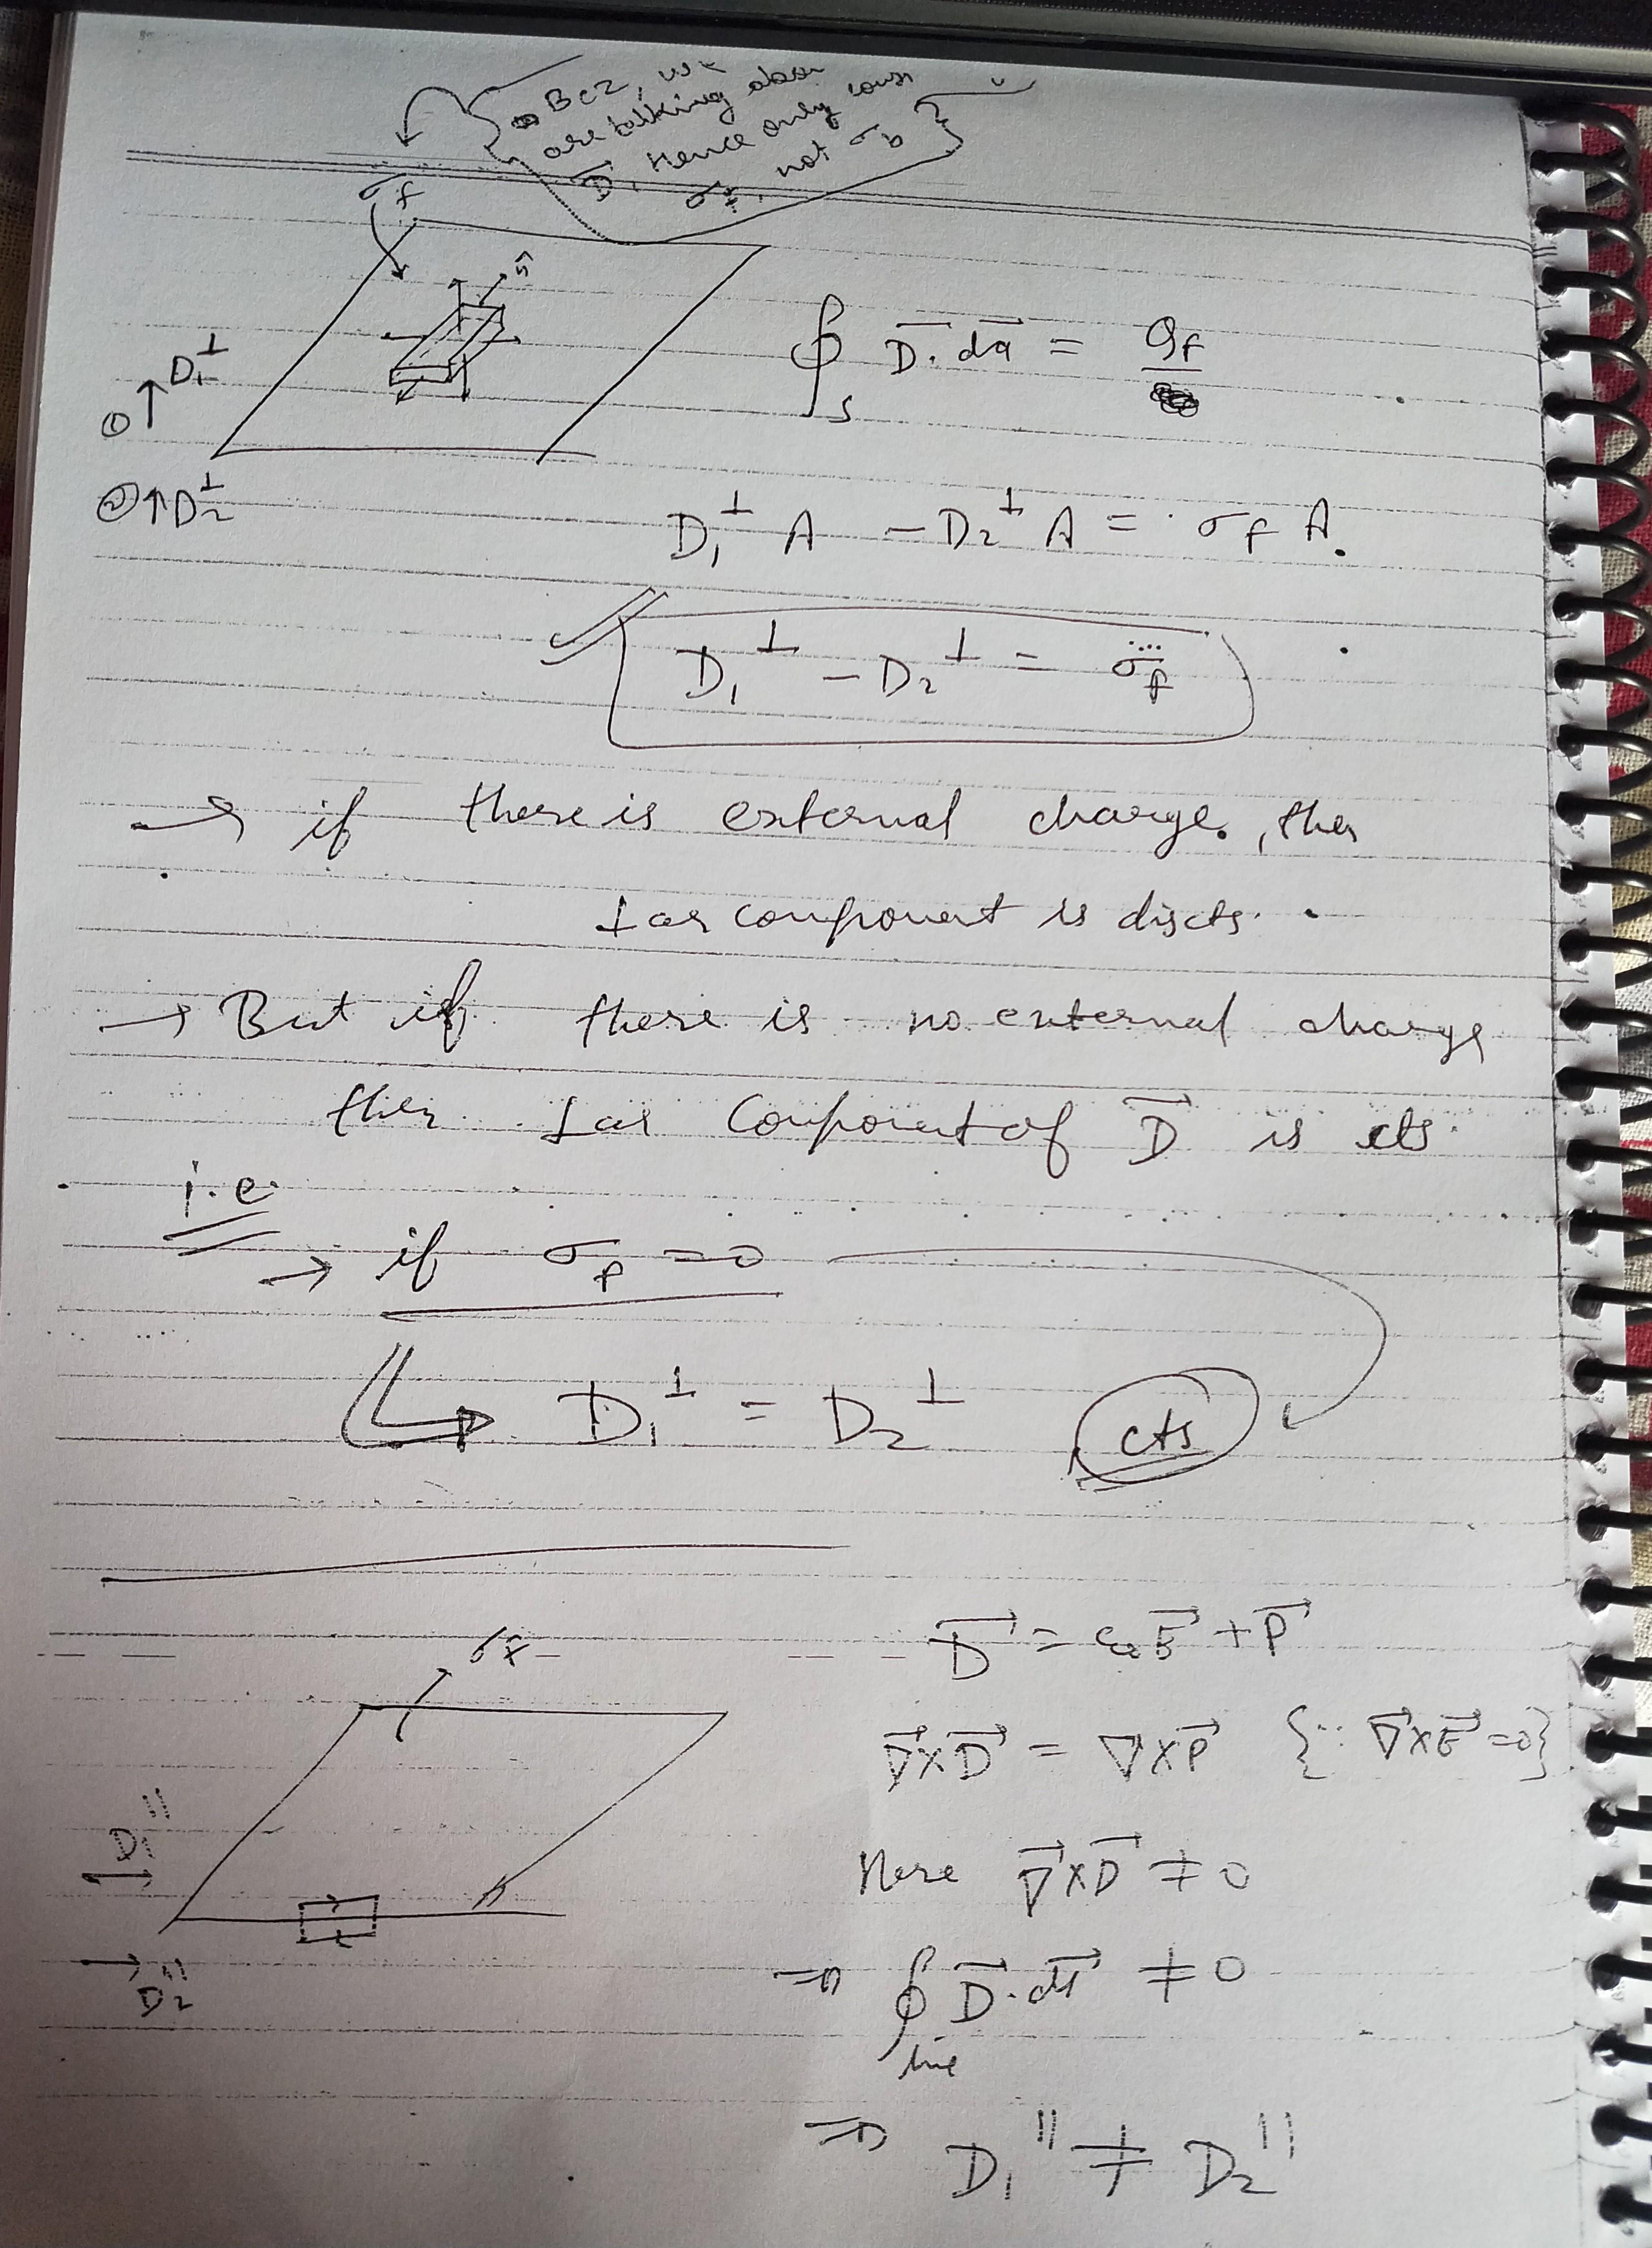 Bcz, we
are talking abou
D⃗, Hence only cons
σf, not σb
σf
n̂
D₁⊥
① ↑
② ↑ D₂⊥
∮s D⃗. da⃗ = Qf
D₁⊥ A - D₂⊥ A = σf A.
D₁⊥ - D₂⊥ = σf
→ if there is external charge, then
⊥ar component is discts.
→ But if there is no external charge
then ⊥ar Component of D⃗ is cts.
i.e.
→ if σf = 0
D₁⊥ = D₂⊥ cts
σf
D₁∥
D₂∥
D⃗ = ε₀E⃗ + P⃗
∇⃗×D⃗ = ∇×P⃗ {∵ ∇⃗×E⃗ = 0}
Here ∇⃗×D⃗ ≠ 0
⇒ ∮line D⃗. dl⃗ ≠ 0
⇒ D₁∥ ≠ D₂∥